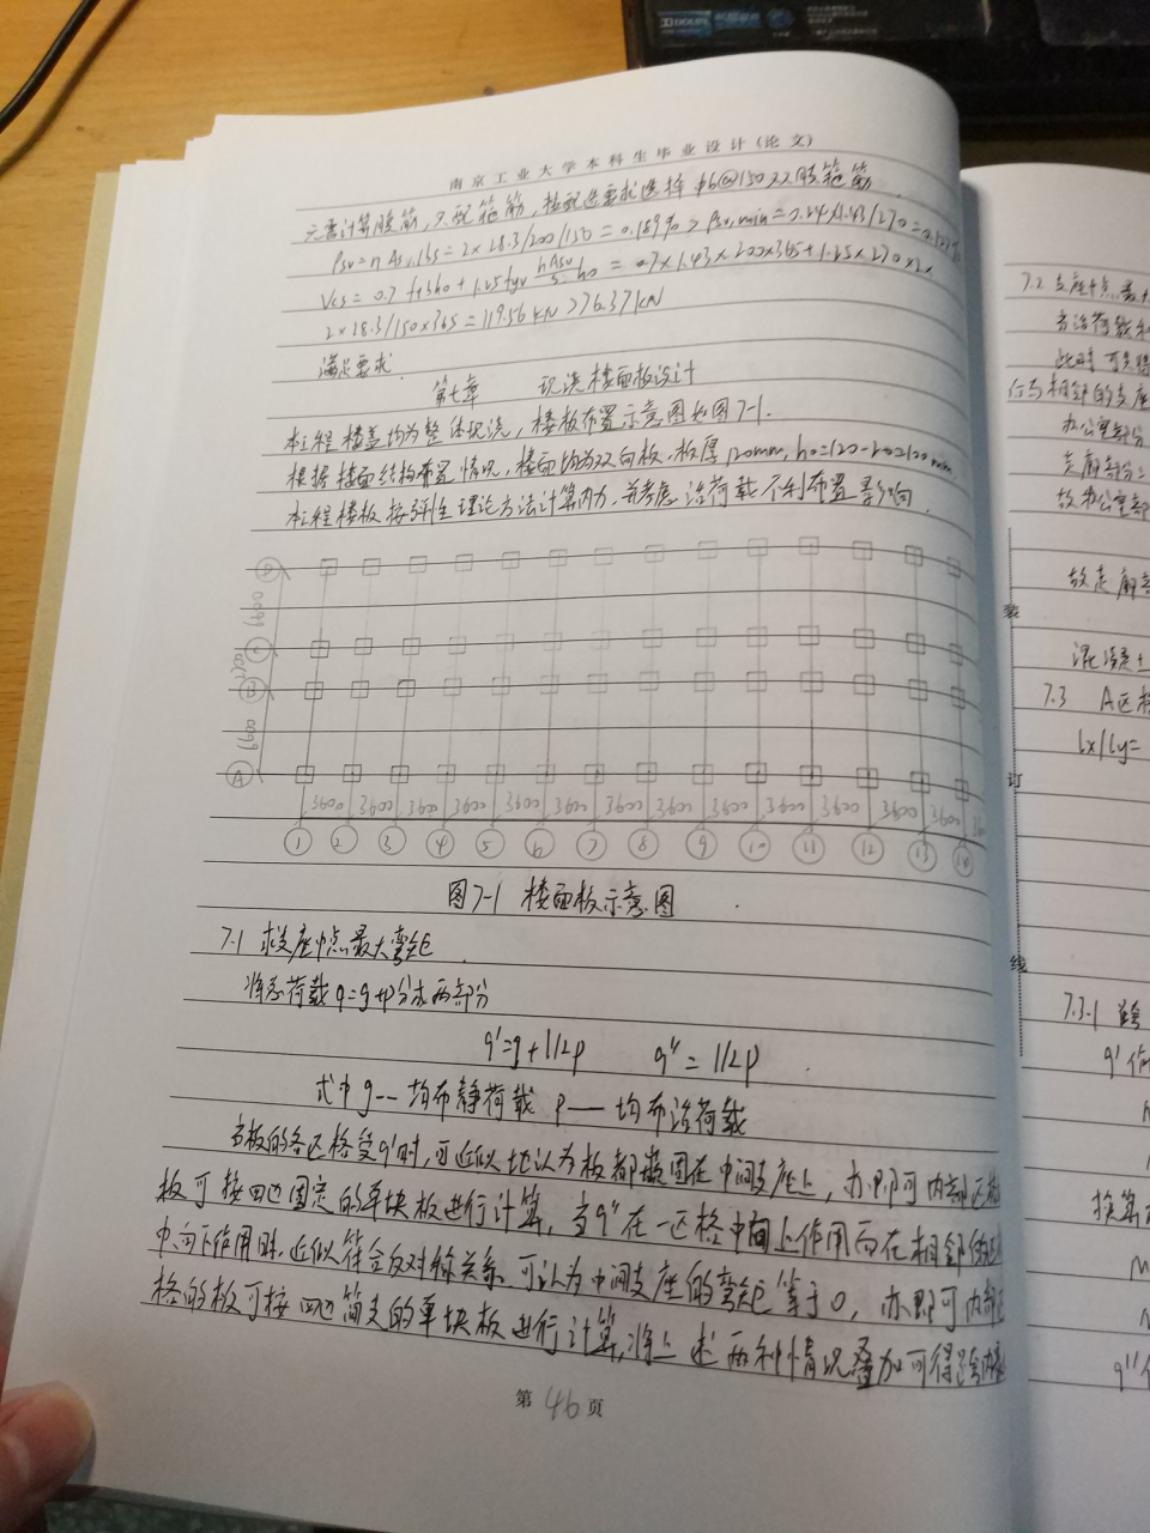 南京工业大学本科生毕业设计(论文)
无需计算腹筋,只配箍筋,按配造要求选择 ϕ6@150双肢箍筋.
ρsv=nAsv1/bs=2×28.3/200/150=0.189%>ρsv,min=0.24×1.43/270=0.127%
Vcs=0.7ftbh0+1.25fyv nAsv/s h0=0.7×1.43×200×365+1.25×270×2×
2×28.3/150×365=119.56kN>76.37kN
满足要求.
第七章 现浇楼面板设计
本工程楼盖均为整体现浇,楼板布置示意图如图7-1.
根据楼面结构布置情况,楼面均为双向板,板厚120mm,h0=120-20=100mm.
本工程楼板按弹性理论方法计算内力,并考虑活荷载不利布置影响.
D
6600
C
B
6600
A
3600 3600 3600 3600 3600 3600 3600 3600 3600 3600 3600 3600
1 2 3 4 5 6 7 8 9 10 11 12 13 14
图7-1 楼面板示意图
7.1 求支座中点最大弯矩
将总荷载q=g+p分成两部分
q'=g+1/2p q''=1/2p
式中g——均布静荷载 p——均布活荷载
当板的各区格受q'时,可近似地认为板都嵌固在中间支座上,亦即可内部区格
板可按四边固定的单块板进行计算,当q''在一区格中间上作用而在相邻
中向下作用时,近似符合反对称关系,可认为中间支座的弯矩等于0,亦即可内部区
格的板可按四边简支的单块板进行计算,将上述两种情况叠加可得跨内
第46页
7.2 支座中点最大
当活荷载
此时可
与相邻的支座
办公室部分
走廊部分:
故办公室部
故走廊
装
混凝土
7.3 A区格
lx/ly=
订
线
7.3.1
q'作
换算
q''